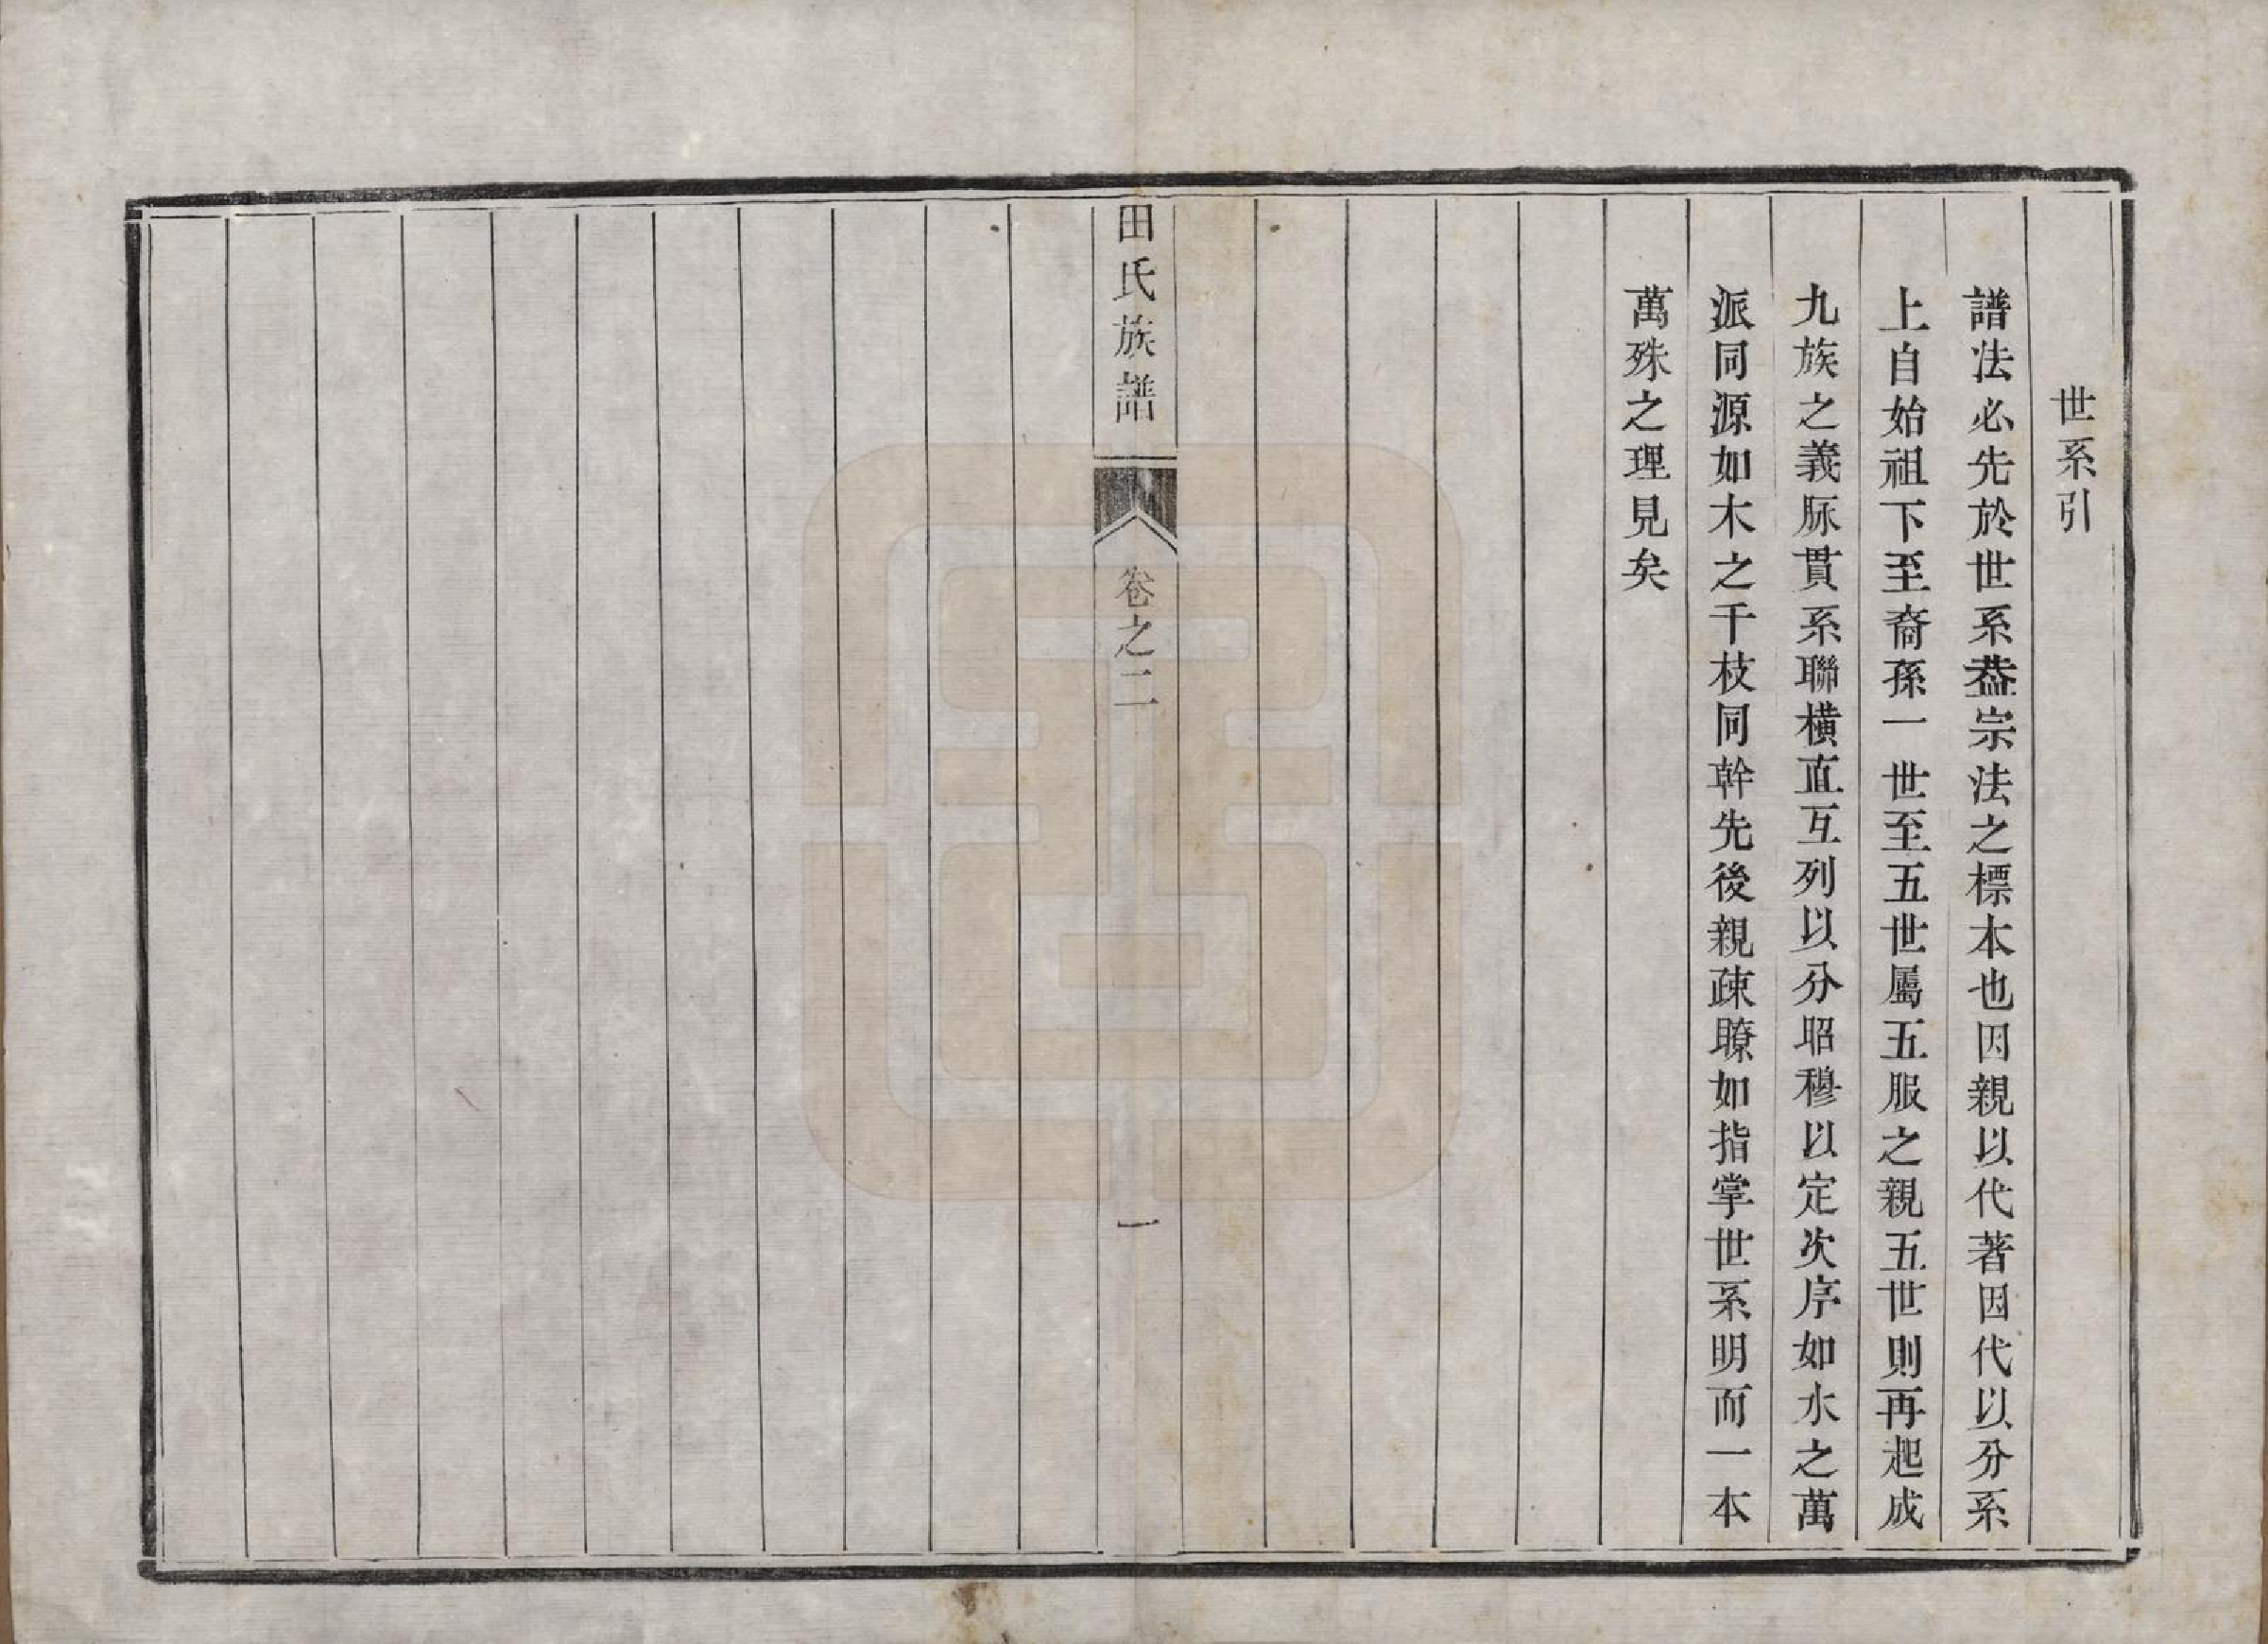 世系引
譜法必先於世系葢宗法之標本也因親以代著因代以分系
上自始祖下至裔孫一世至五世屬五服之親五世則再起成
九族之義脈貫系聯橫直互列以分昭穆以定次序如水之萬
派同源如木之千枝同幹先後親疎瞭如指掌世系明而一本
萬殊之理見矣
田氏族譜
卷之二
一